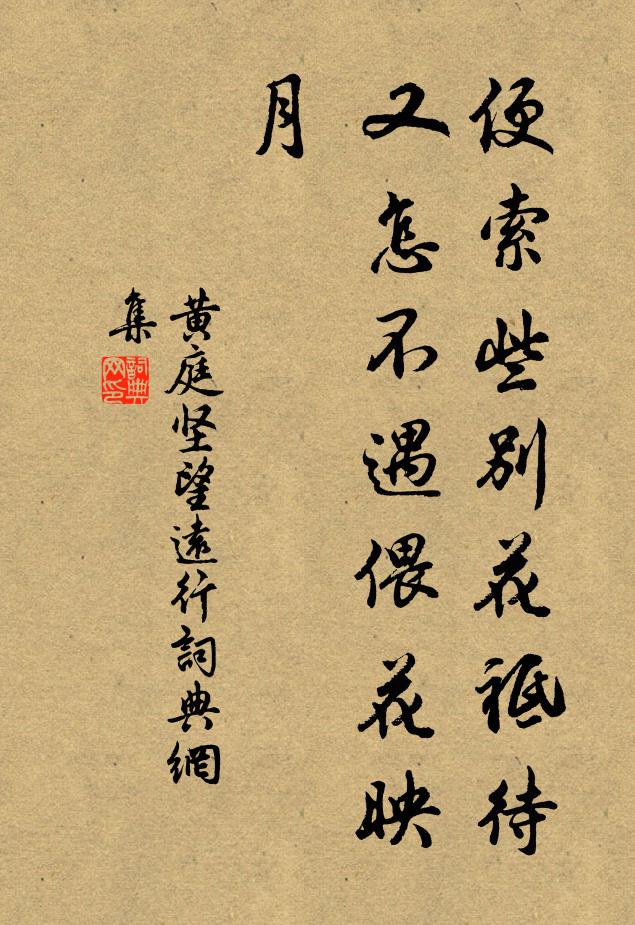 便索些别花祗待
又怎不遇偎花映
月
黄庭坚望遠行詞典網
集
詞典
网印